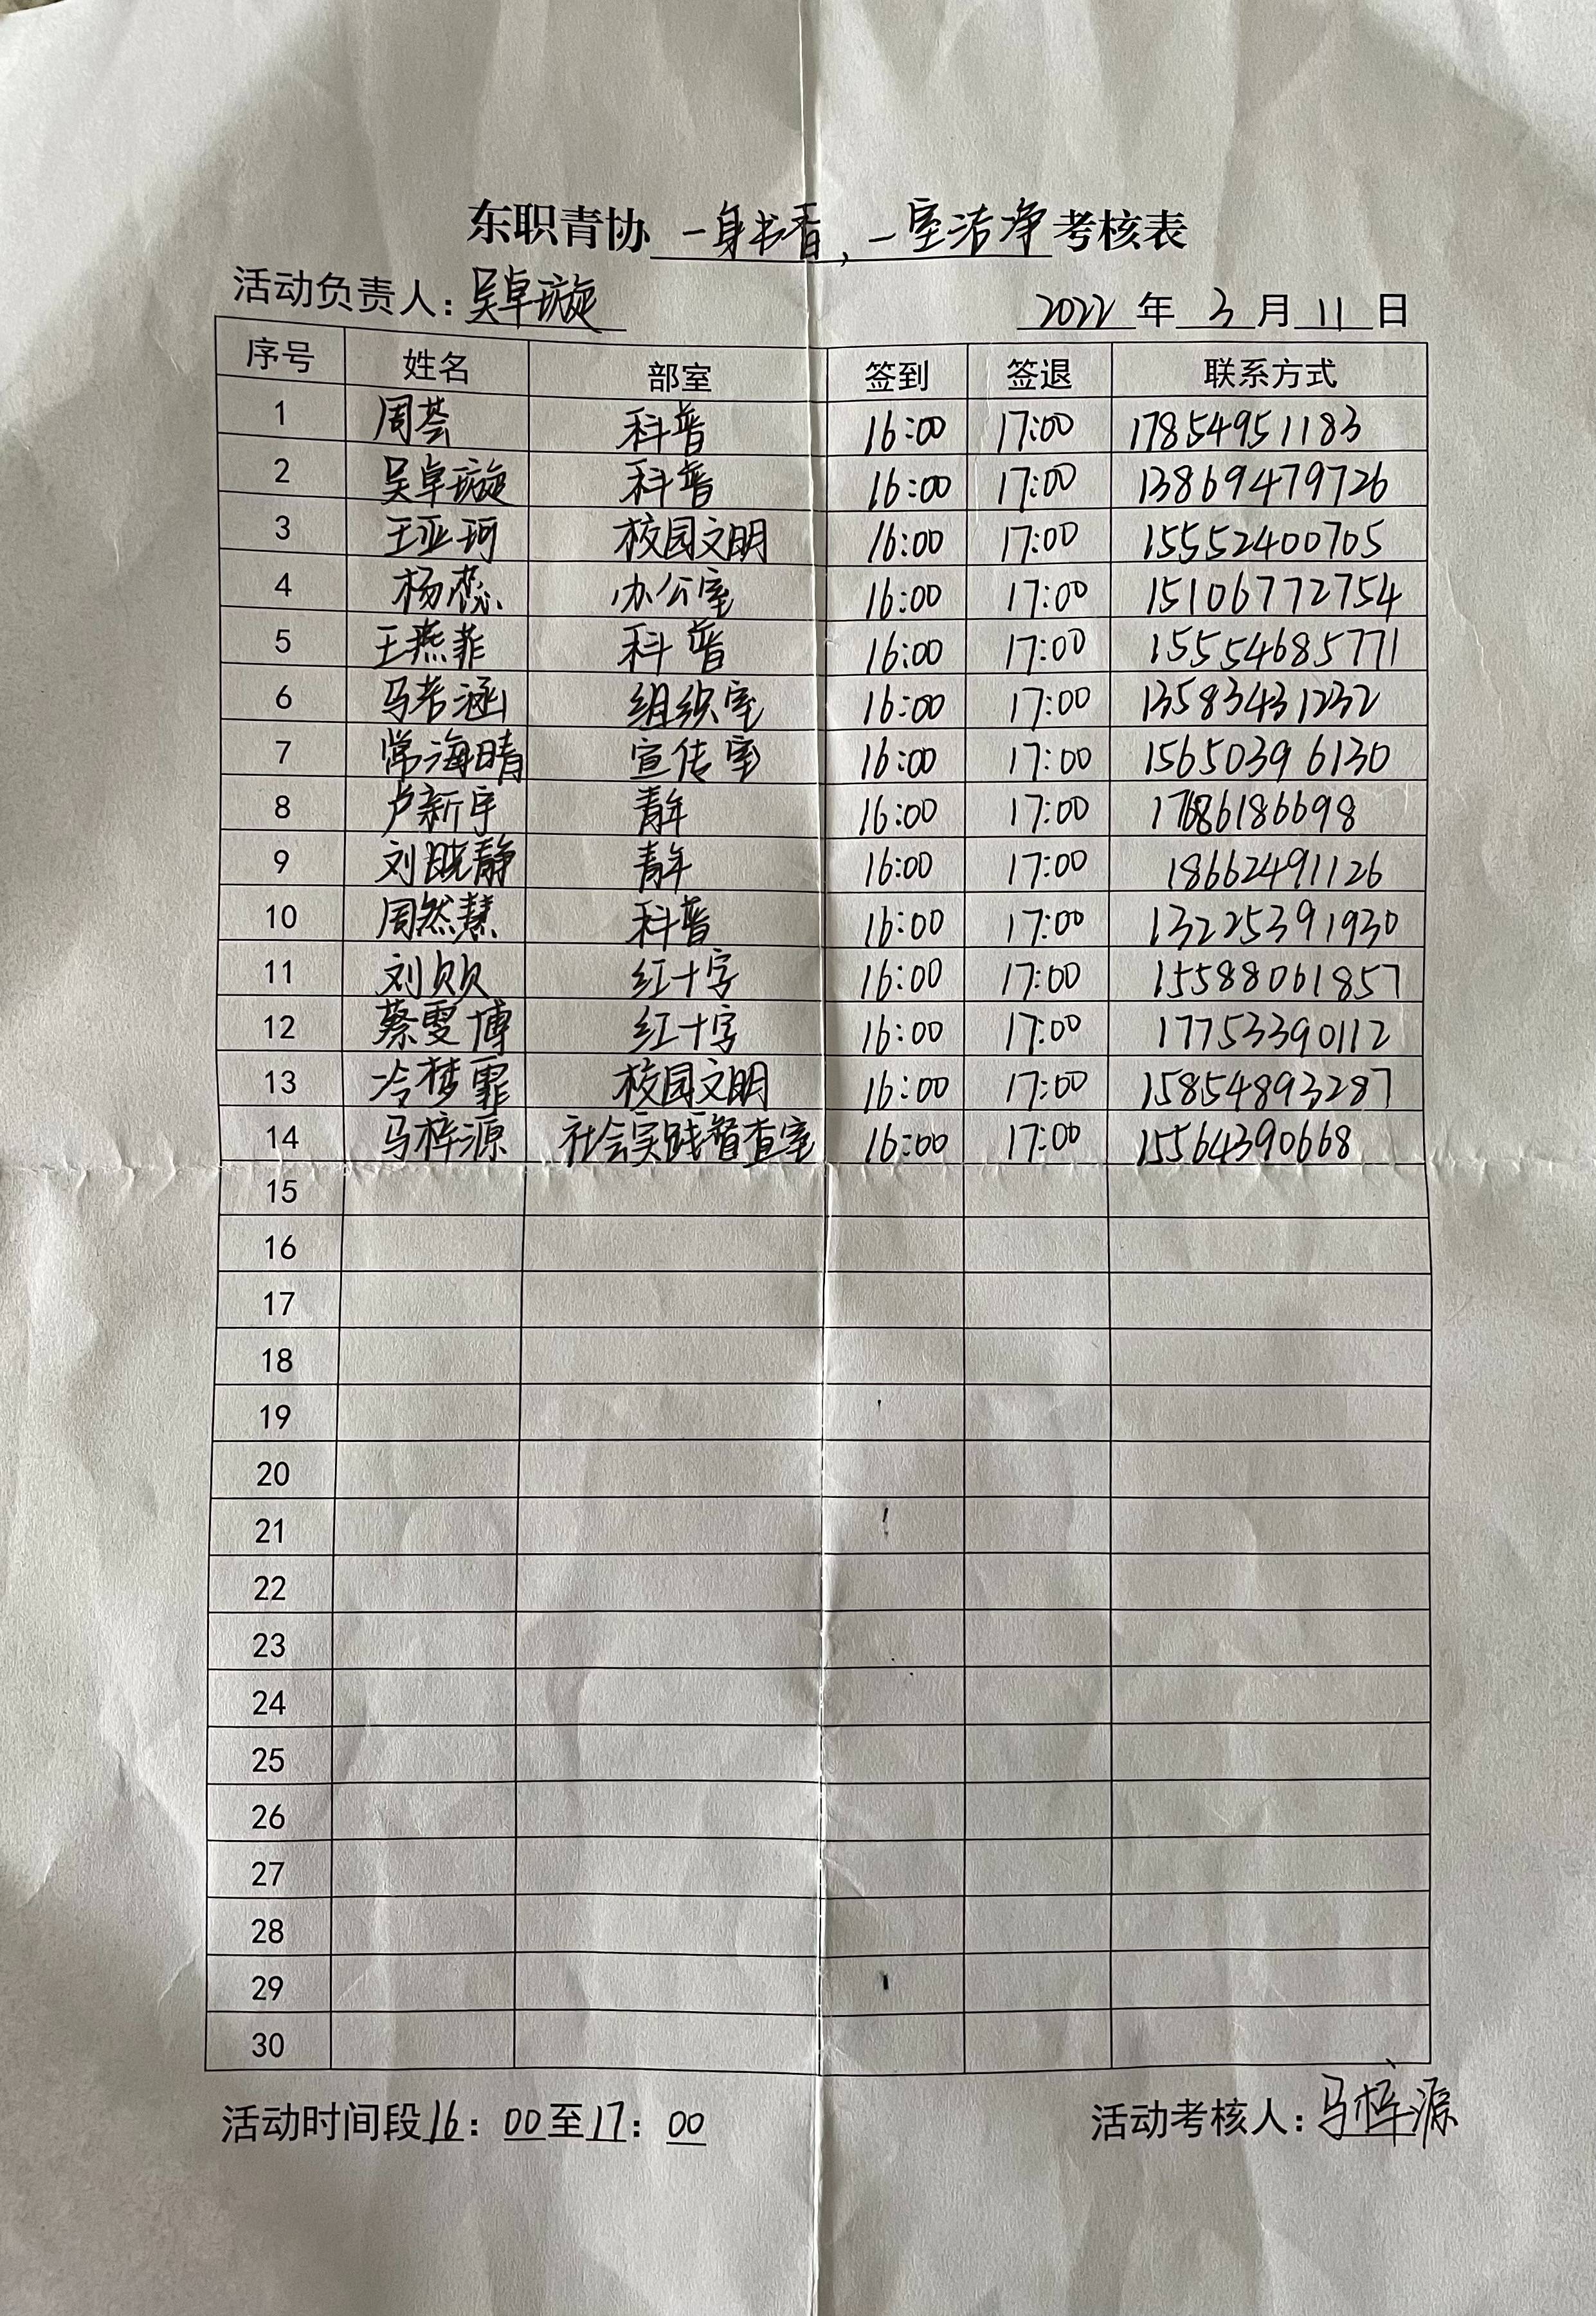 东职青协 一身书香,一室洁净 考核表
活动负责人:吴卓璇 2022 年 3 月 11 日
序号 姓名 部室 签到 签退 联系方式
1 周荟 科普 16:00 17:00 17854951183
2 吴卓璇 科普 16:00 17:00 13869479726
3 王亚珂 校园文明 16:00 17:00 15552400705
4 杨蕊 办公室 16:00 17:00 15106772754
5 王燕菲 科普 16:00 17:00 15554685771
6 马若涵 组织室 16:00 17:00 13583431232
7 常海晴 宣传室 16:00 17:00 15650396130
8 卢新宇 青年 16:00 17:00 17686186698
9 刘晓静 青年 16:00 17:00 18662491126
10 周然慧 科普 16:00 17:00 13225391930
11 刘贝贝 红十字 16:00 17:00 15588061857
12 蔡雯博 红十字 16:00 17:00 17753390112
13 冷梦霏 校园文明 16:00 17:00 15854893287
14 马梓源 社会实践督查室 16:00 17:00 15564390668
15
16
17
18
19
20
21
22
23
24
25
26
27
28
29
30
活动时间段16:00至17:00 活动考核人:马梓源